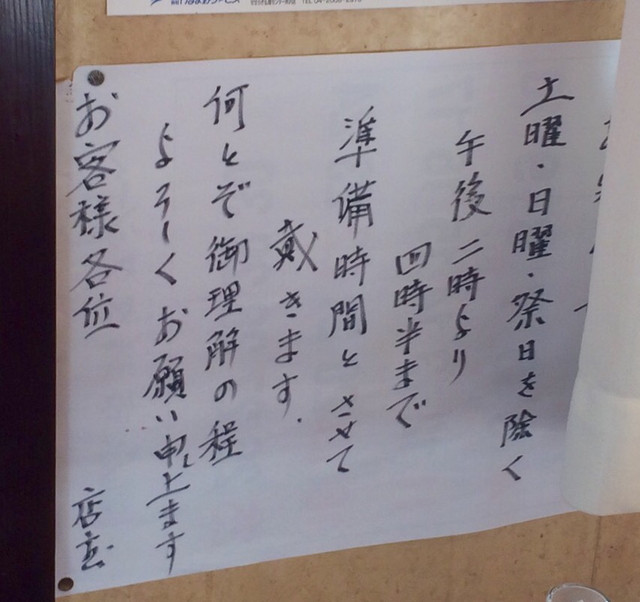 土曜・日曜・祭日を除く
午後二時より
四時半まで
準備時間とさせて
戴きます.
何とぞ御理解の程
よろしくお願い申し上ます
お客様各位
店主